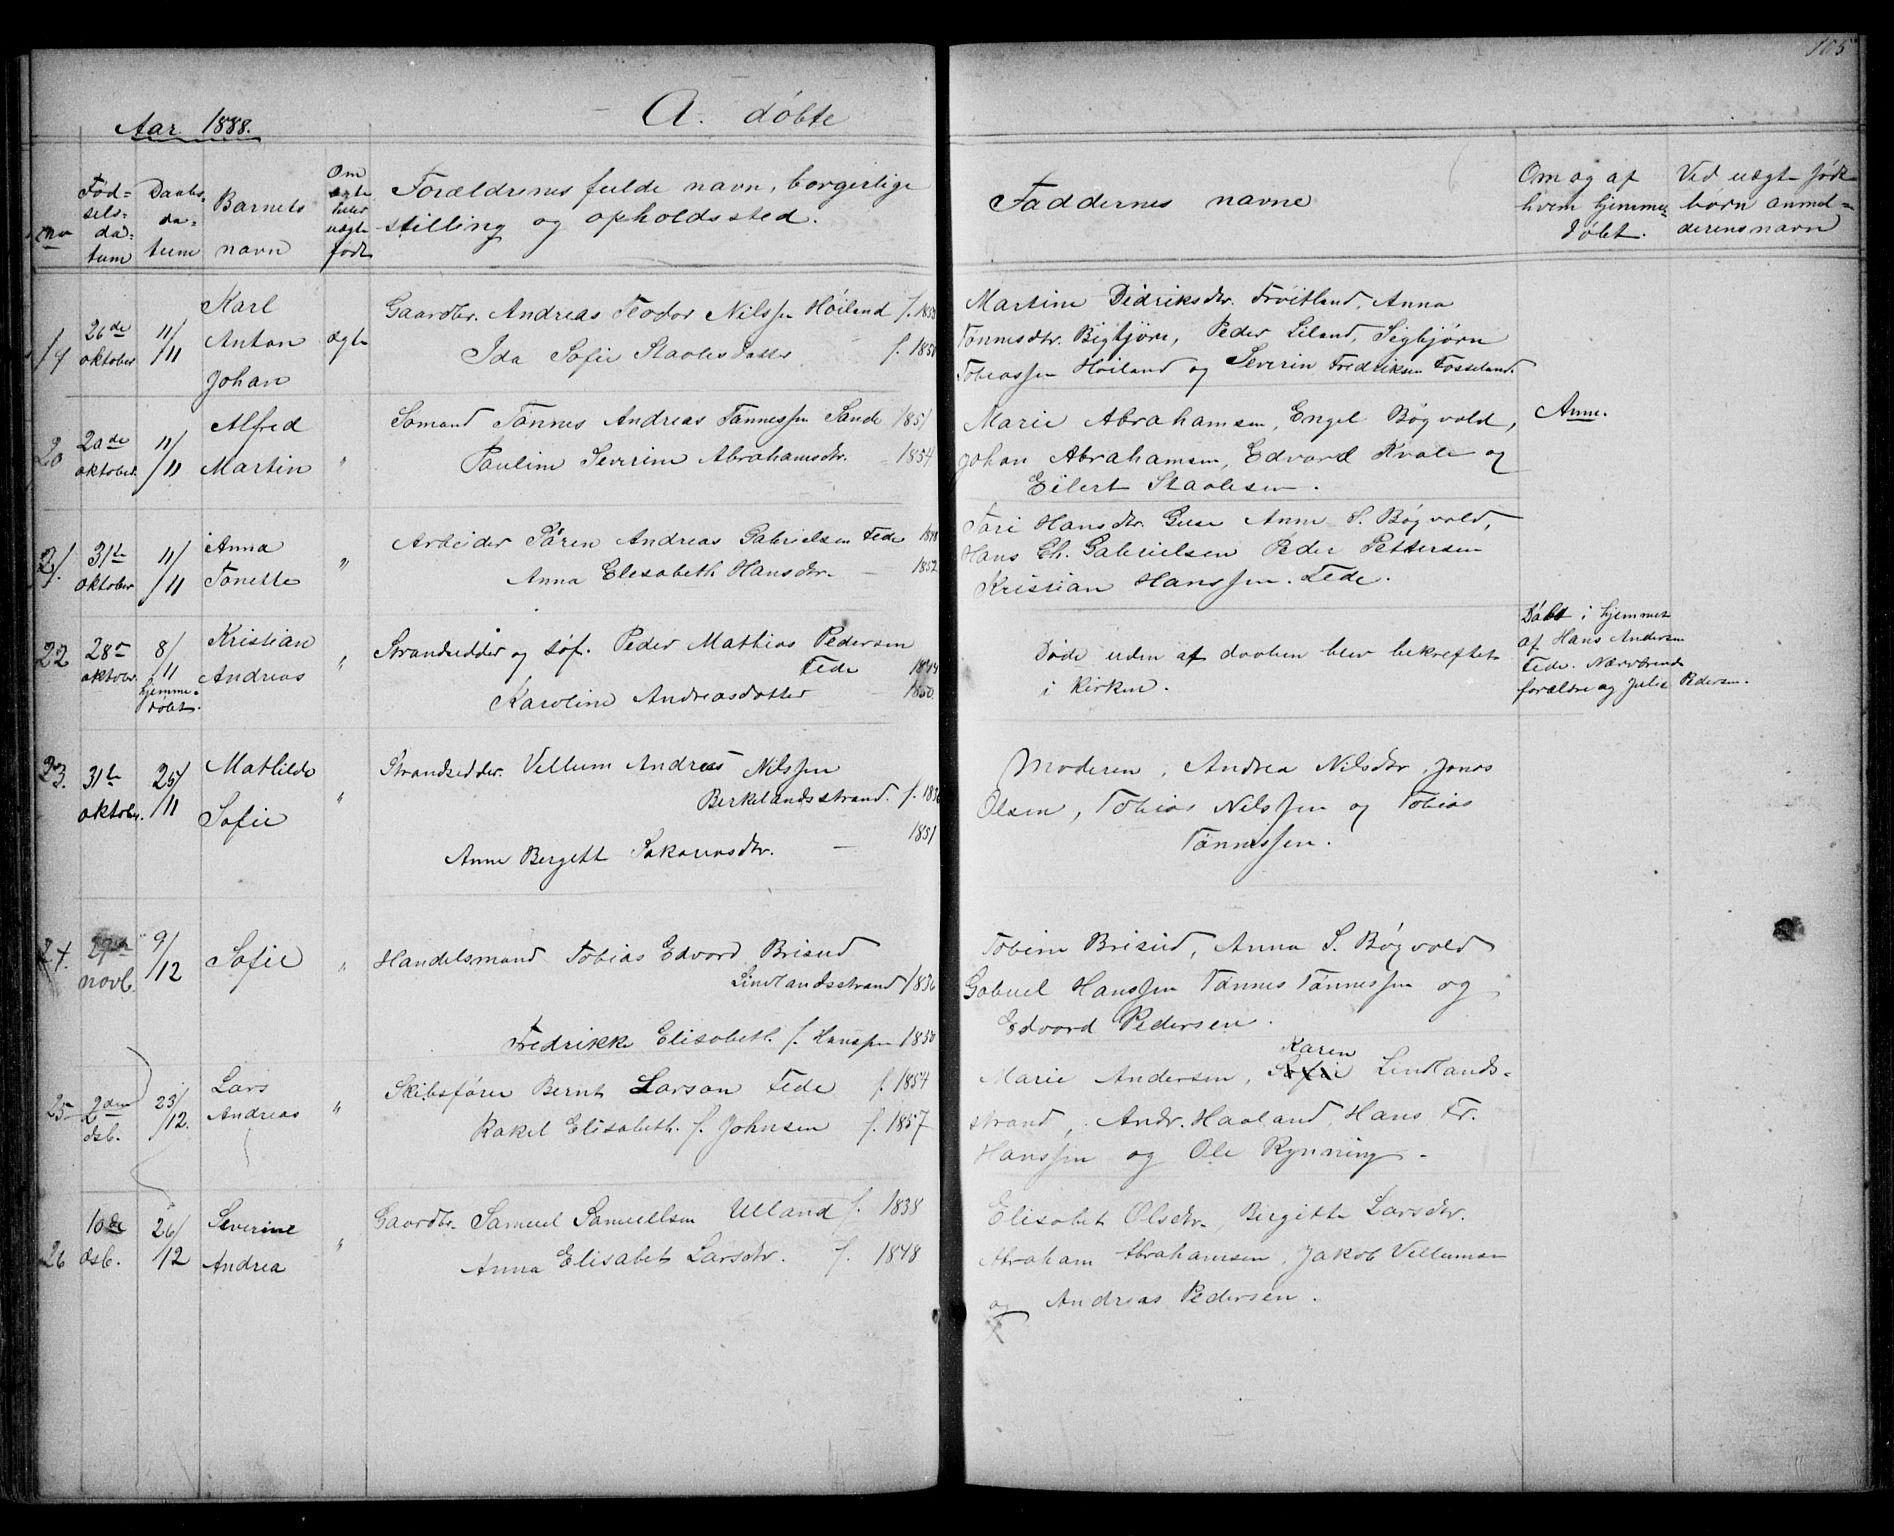 105
A. døbte
Aar 1888.
no
Fød-
sels-
da-
tum
Daabs
da-
tum
Barnets
navn
Om
ægte
eller
uægte
født
Forældrenes fulde navn, borgerlige
stilling og opholdssted.
Faddernes navne
Om og af
hvem hjemme-
døbt.
Ved uægte født
børn anmel-
derens navn
19
26de
oktober
11/11
Karl
Anton
Johan
ægte
Gaardbr. Andreas Teodor Nilssen Høiland f. 1855
Ida Sofie Staalesdatter f. 1850
Martine Didriksdtr. Frøitland, Anna
Tønnesdtr. Bigbjøre, Peder Liland, Sigbjørn
Tobiassen Høiland og Severin Fredriksen Fosseland.
20
20de
oktober
11/11
Alfred
Martin
"
Sømand Tønnes Andreas Tønnessen Sande 1851
Pauline Severine Abrahamsdtr. 1854
Marie Abrahamsen, Engel Bøgvald,
Johan Abrahamsen, Edvard Kvale og
Eilert Staalesen.
Anne.
21.
31te
oktober
11/11
Anna
Tonette
"
Arbeider Søren Andreas Gabrielsen Fede 1848
Anna Elesabeth Hansdtr. — 1852
Tari Hansdtr. Guse Anne S. Bøgvald,
Hans Ch. Gabrielsen Peder Pettersen
Kristian Hanssen. Fede.
22
28de
oktober
8/11
hjemme-
døbt.
Kristian
Andreas
"
Strandsidder og søf. Peder Mathias Pedersen
Fede 1844
Karoline Andreasdatter 1850.
Døde uden at daaben blev bekreftet
i kirken.
Døbt i hjemmet
af Hans Andersen
Fede. Nærværende
forældre og Julie Pedersen.
23.
31te
oktober.
25/11
Mathilde
Sofie
"
Strandsidder. Villum Andreas Nilssen
Berkelandsstrand. f. 1836
Anne Bergitt Sakariasdtr. — 1851
Moderen, Andrea Nilsdtr. Jonas
Olsen, Tobias Nilssen og Tobias
Tønnessen.
24.
novb.
9/12
Sofie
"
Handelsmand Tobias Edvard Brisud
Lindlandsstrand 1836
Fredrikke Elisabeth f. Hanssen 1850
Tobine Brisud, Anna S. Bøgvald
Gabriel Hanssen Tønnes Tønnessen og
Edvard Pedersen.
25
2den
dsb.
23/12.
Lars
Andreas
"
Skibsfører Bernt Larsen Fede f. 1854
Rakel Elisabeth. f. Johnsen f. 1857
Karen
Marie Andersen, Sofie Lindlands-
strand, Andr. Haaland, Hans Fr.
Hanssen og Ole Rynning.
26
10de
dsb.
26/12
Severine
Andrea
"
Gaardbr. Samuel Samuelsen Ulland f. 1838
Anna Elisabet Larsdtr. f. 1848
Elisabet Olsdtr. Birgitte Larsdtr.
Abraham Abrahamsen, Jakob Villumsen
og Andreas Pedersen.